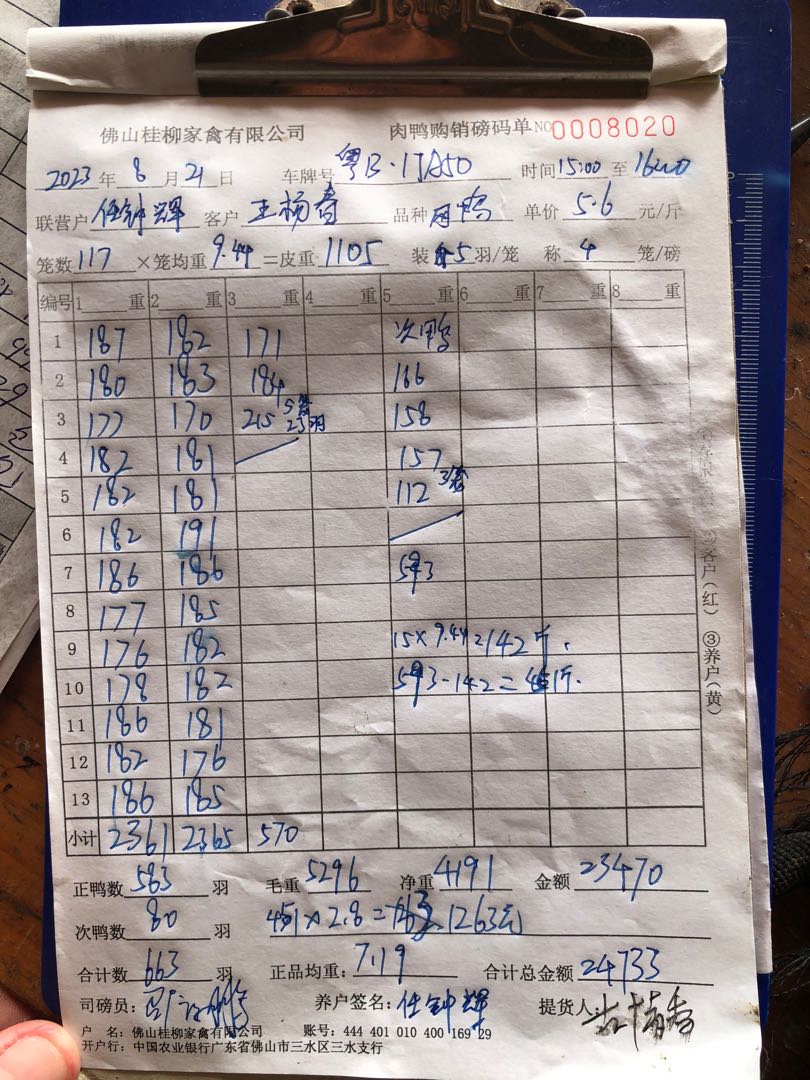 佛山桂柳家禽有限公司 肉鸭购销磅码单 NO 0008020
2023 年 8 月 21 日 车牌号 粤B·17A50 时间 15:00 至 16:20
联营户 任钟辉 客户 王杨春 品种 肉鸭 单价 5.6 元/斤
笼数 117 ×笼均重 9.44 =皮重 1105 装 5 羽/笼 称 4 笼/磅
编号 1 重 2 重 3 重 4 重 5 重 6 重 7 重 8 重
1 187 182 171 次鸭
2 180 183 184 166
3 177 170 215 5笼 25羽 158
4 182 181 157
5 182 181 112 3笼
6 182 191
7 186 186 593
8 177 185
9 176 182 15×9.44=142斤.
10 178 182 593-142=451斤.
11 186 181
12 182 176
13 186 185
小计 2361 2365 570
正鸭数 583 羽 毛重 5296 净重 4191 金额 23470
次鸭数 80 羽 451×2.8= 1263元
合计数 663 羽 正品均重: 7.19 合计总金额 24733
司磅员: 养户签名: 任钟辉 提货人:
户 名: 佛山桂柳家禽有限公司 账号: 444 401 010 400 169 29
开户行: 中国农业银行广东省佛山市三水区三水支行
②客户(红) ③养户(黄)